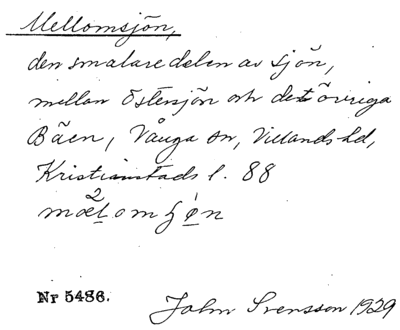 Mellomsjön,
den smalare delen av sjön,
mellan Östensjön och det övriga
Bäen, Vånga sn, Villands hd,
Kristianstads l. 88
Nr 5486.
John Svensson 1929